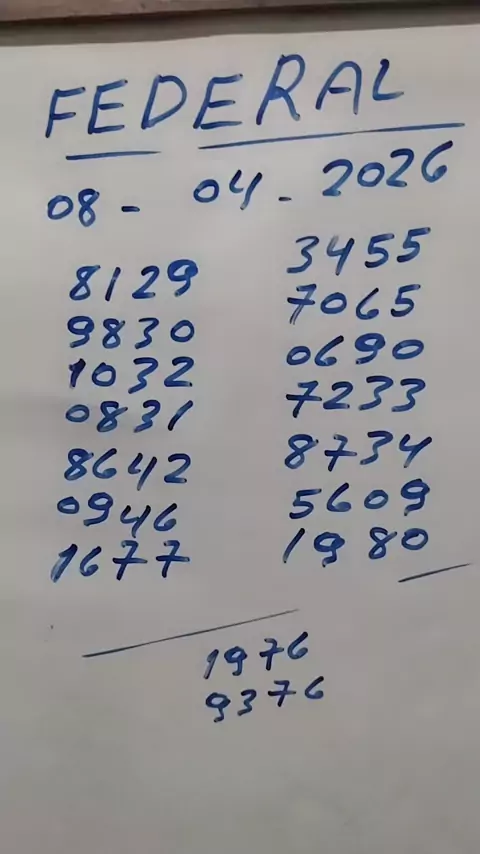 FEDERAL
08 - 04 - 2026
8129 3455
9830 7065
1032 0690
0831 7233
8642 8734
0946 5609
1677 1980
1976
9376